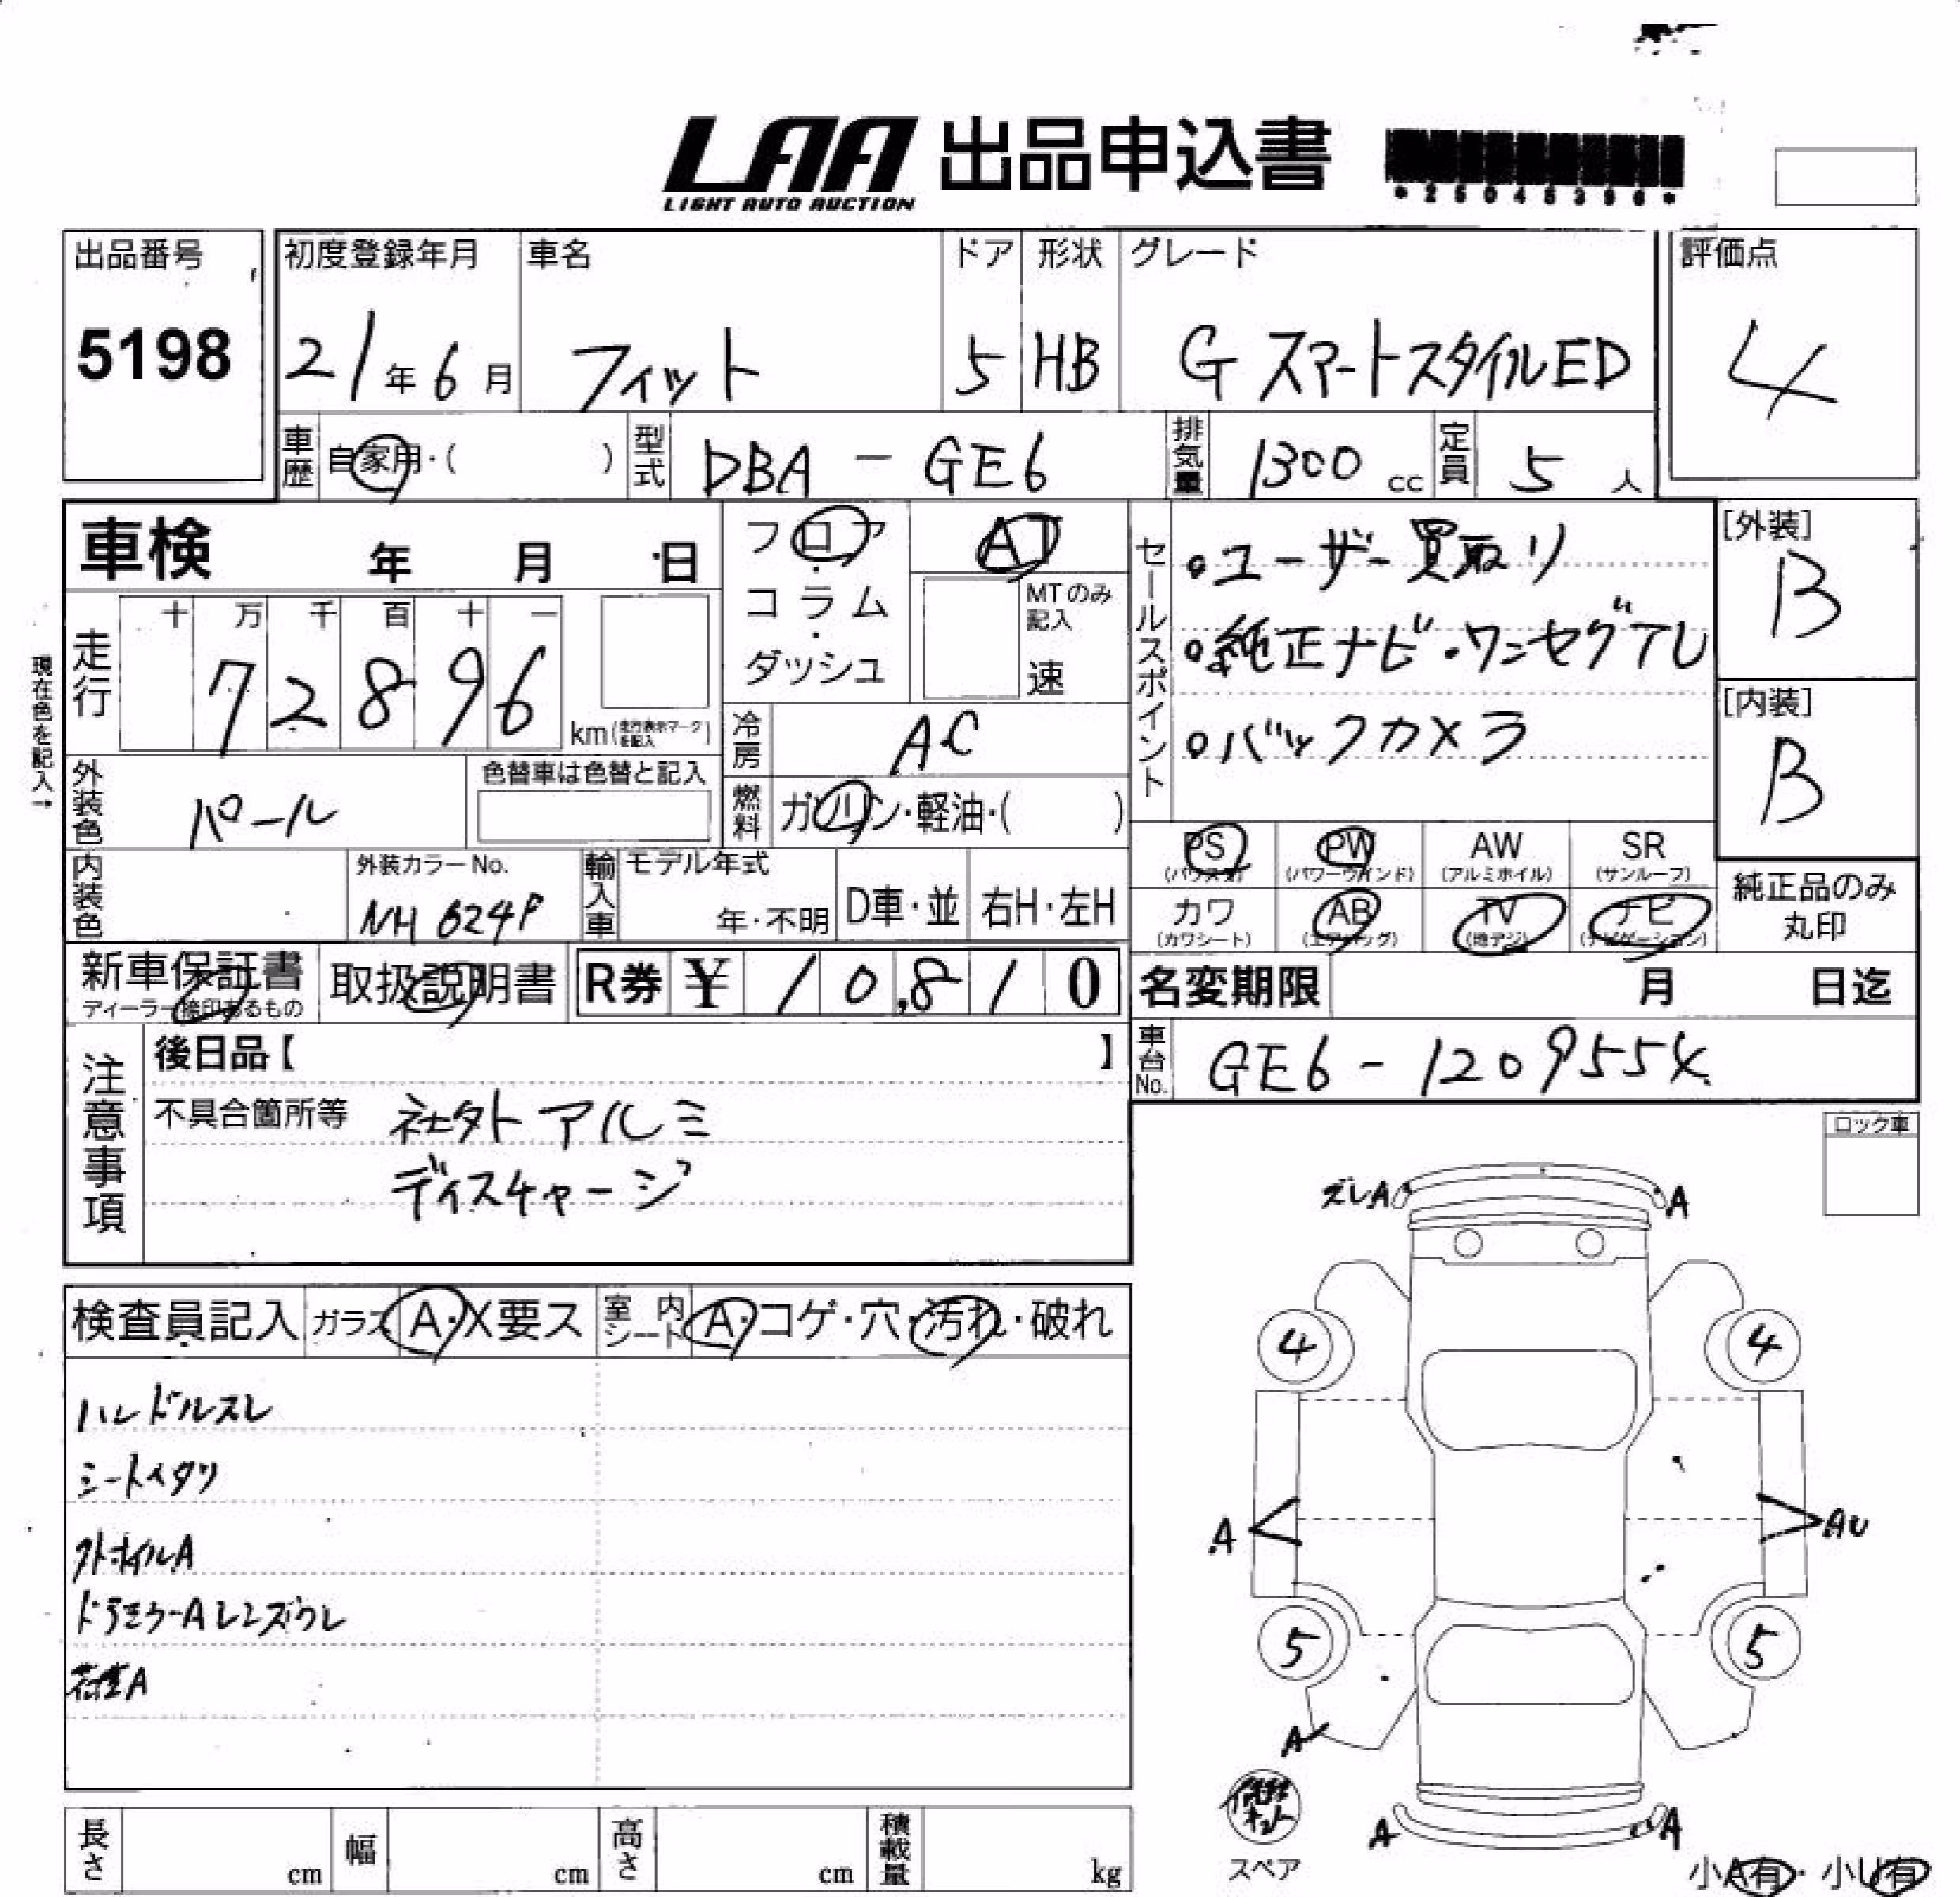 LAA 出品申込書
LIGHT AUTO AUCTION
*25045396*
出品番号
5198
初度登録年月
21年6月
車名
フィット
ドア
5
形状
HB
グレード
G スマートスタイルED
評価点
4
車歴 自家用・( )
型式 DBA - GE6
排気量 1300 cc
定員 5 人
車検 年 月 日
現在色を記入→
走行 十 万 千 百 十 一
72896 km (走行表示マークを記入)
フロア・コラム・ダッシュ
AT
MTのみ記入
速
冷房 AC
燃料 ガソリン・軽油・( )
外装色 パール
色替車は色替と記入
内装色
外装カラーNo.
NH 624P
輸入車 モデル年式
年・不明
D車・並
右H・左H
セールスポイント
・ユーザー買取り
・純正ナビ・ワンセグTV
・バックカメラ
[外装]
B
[内装]
B
PS (パワステ)
PW (パワーウインド)
AW (アルミホイル)
SR (サンルーフ)
カワ (カワシート)
AB (エアバッグ)
TV (地デジ)
ナビ (ナビゲーション)
純正品のみ丸印
新車保証書
ディーラー捺印あるもの
取扱説明書
R券 ¥ 10,810
名変期限 月 日迄
車台No. GE6 - 1209554
注意事項
後日品【 】
不具合箇所等 社外アルミ
ディスチャージ
ロック車
検査員記入 ガラス A・X要ス 室内シート A・コゲ・穴・汚れ・破れ
ハンドルスレ
シートヘタリ
外ホイルA
ドラミラーAレンズウレ
荷室A
ズレA
A
4
4
A
AU
5
5
A
A
A
スペア
小A有・小U有
長さ cm
幅 cm
高さ cm
積載量 kg